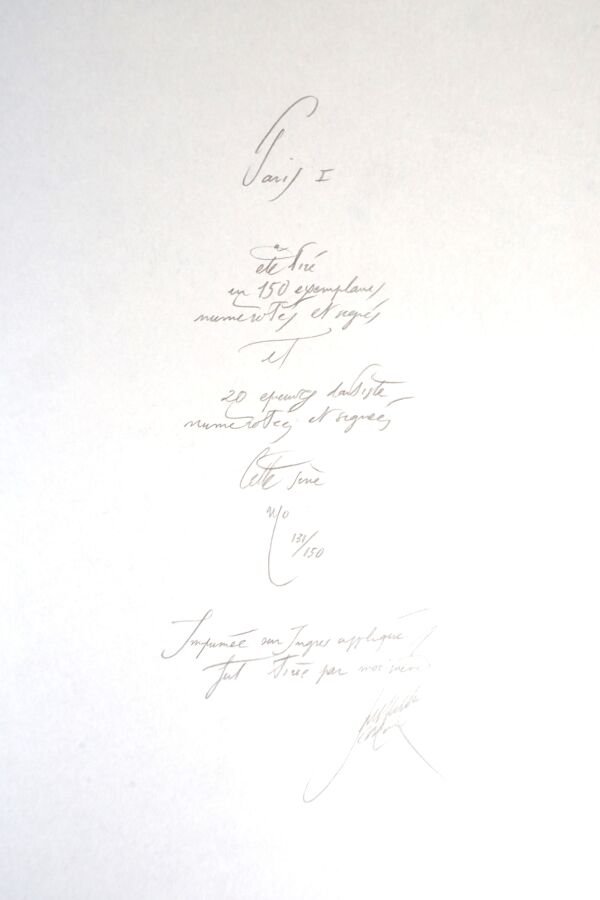 Paris I
a
été tiré
en 150 exemplaires
numerotés et signés
et
20 epreuves d'artiste
numerotees et signées
Cette série
No
/150
Imprimée sur Ingres appliqué
fut tirée par moi même